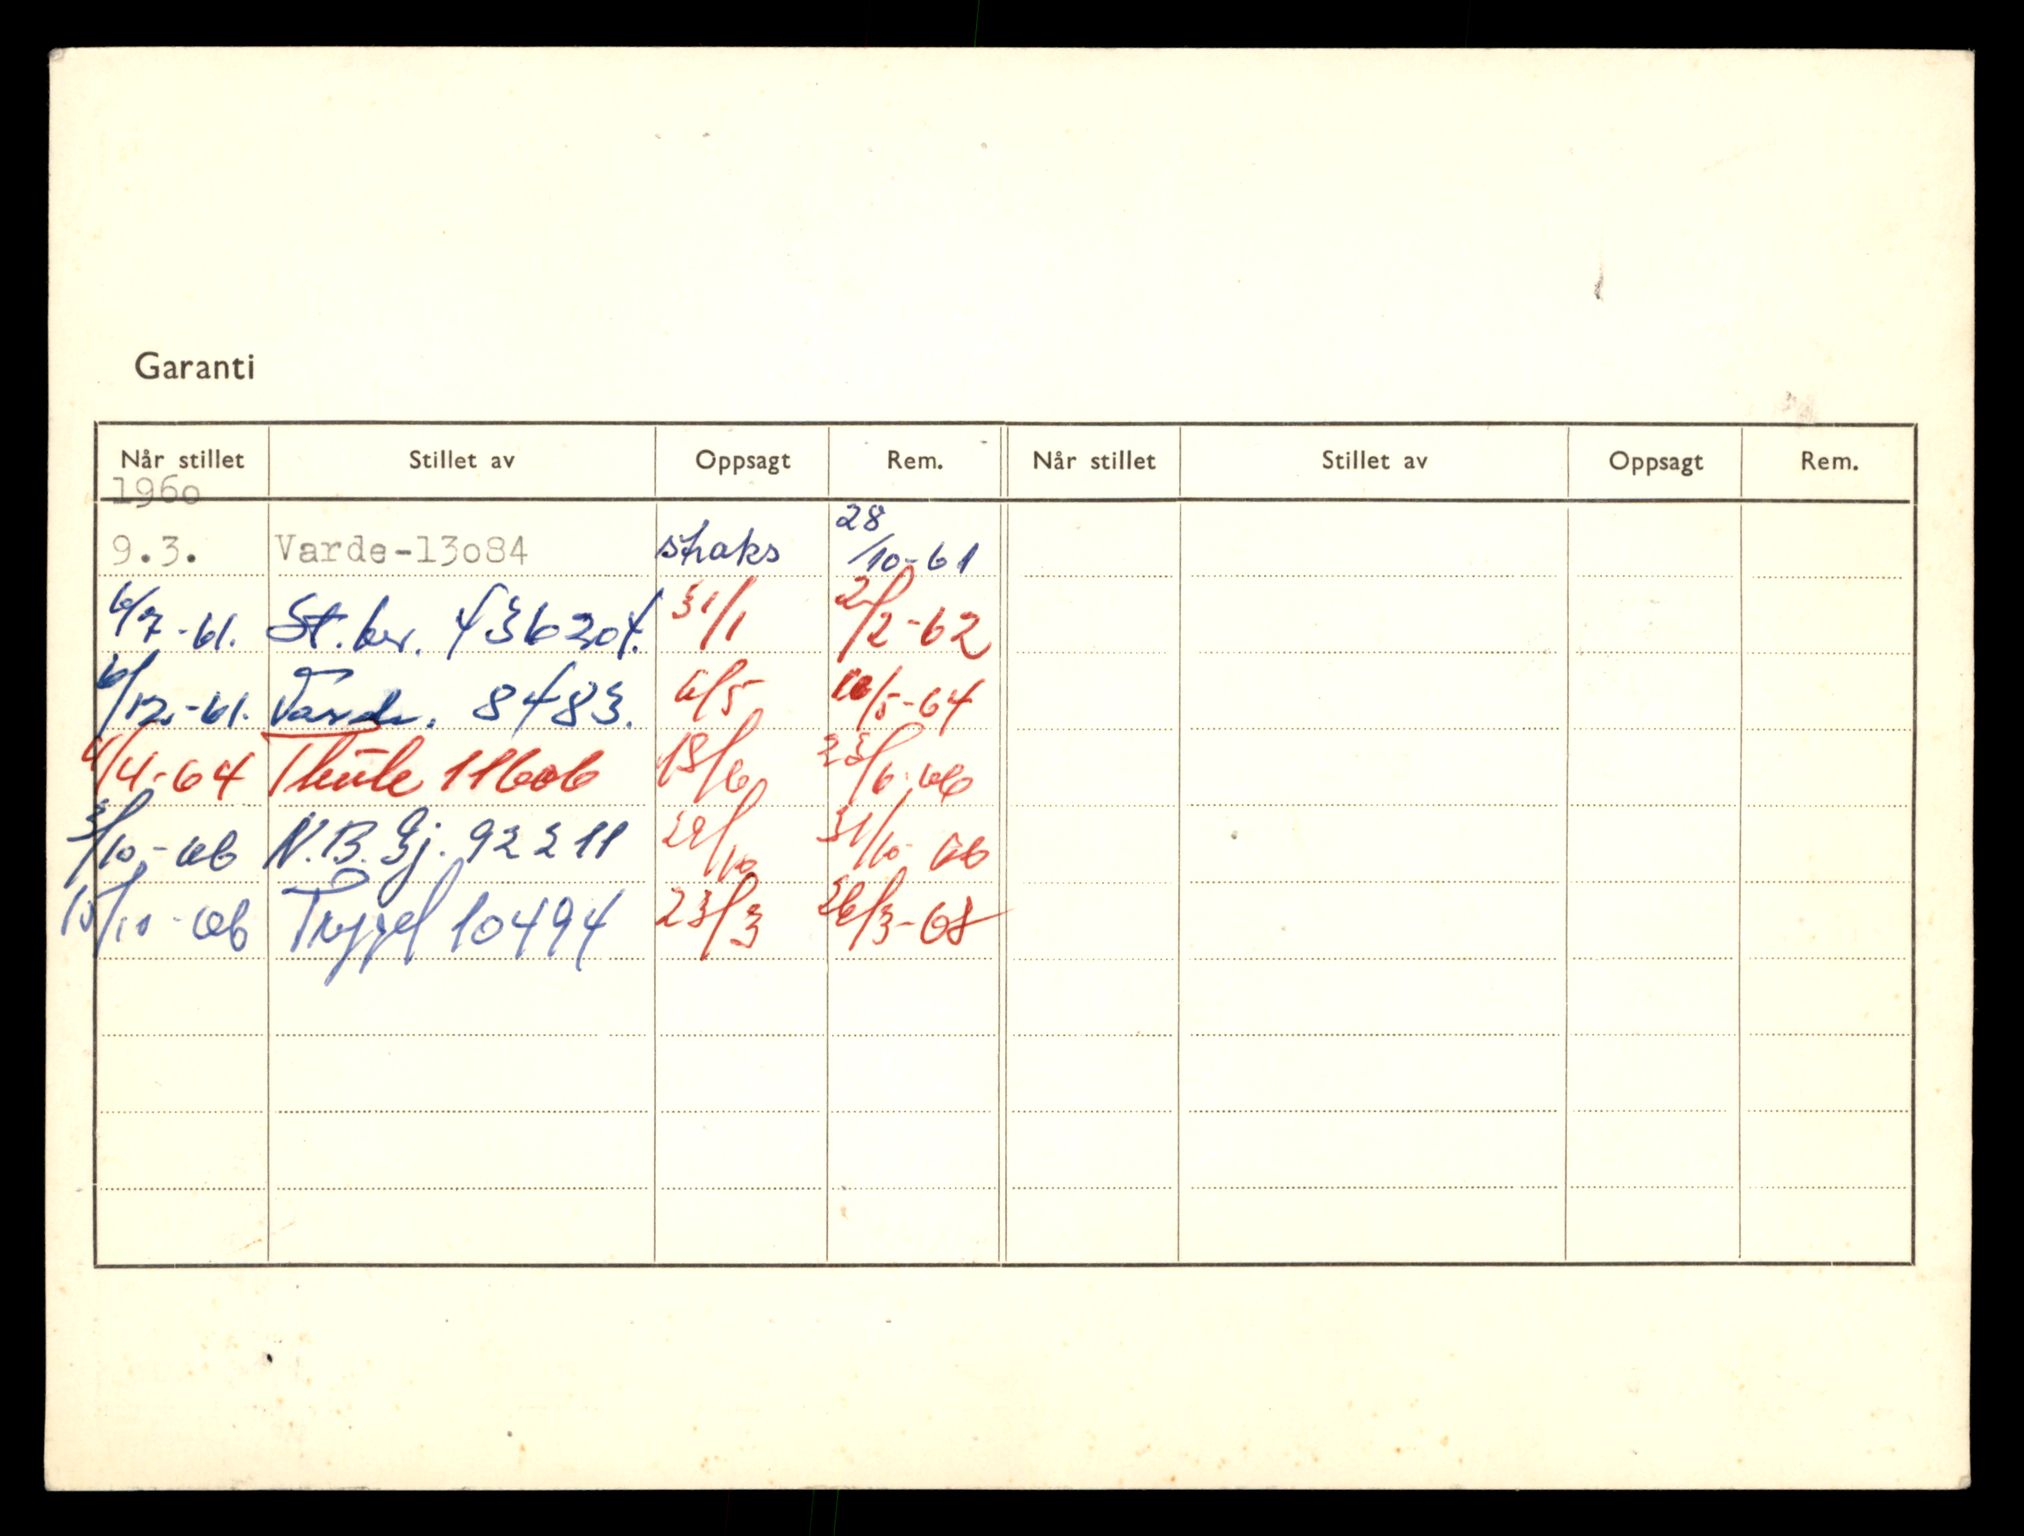 Garanti
Når stillet Stillet av Oppsagt Rem. Når stillet Stillet av Oppsagt Rem.
1960
9.3. Varde-13o84 straks 28/10-61
6/7-61. St.ber. 436204. 31/1 2/2-62
6/12-61. Varde. 8483. 6/5 /5-64
4/4-64 Thule 11606 18/6 23/6-66
3/10-66 N.B. Gj. 92211 29/10 31/10-66
15/10-66 10494 23/3 26/3-68